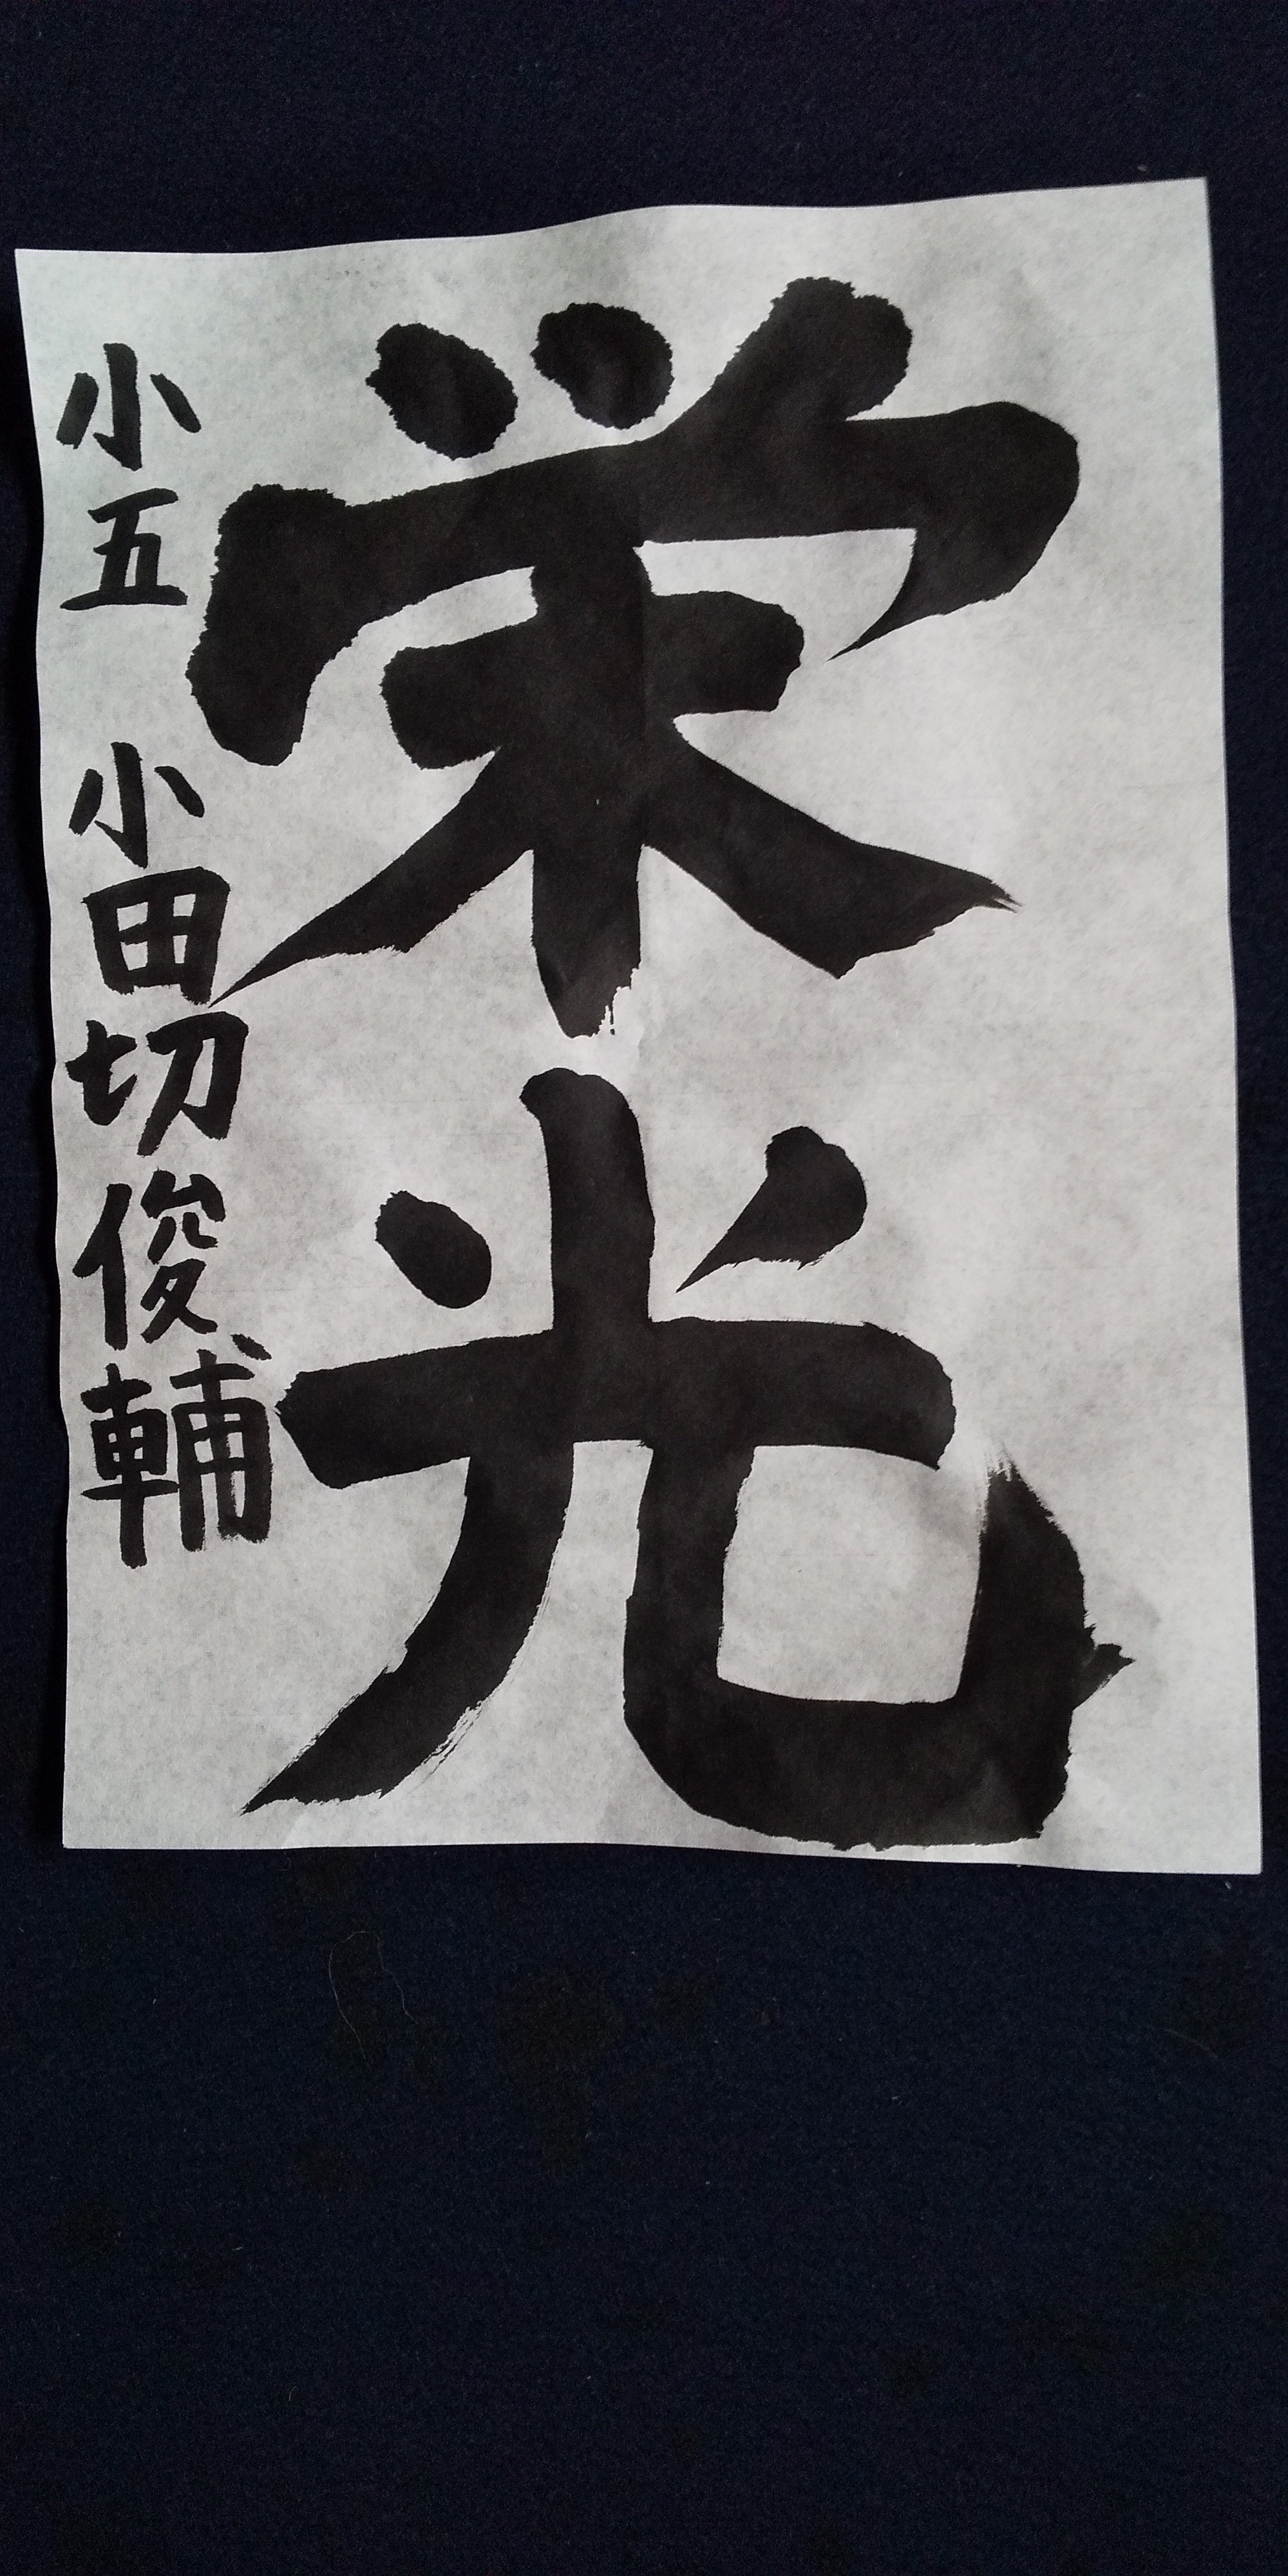 栄光
小五 小田切俊輔